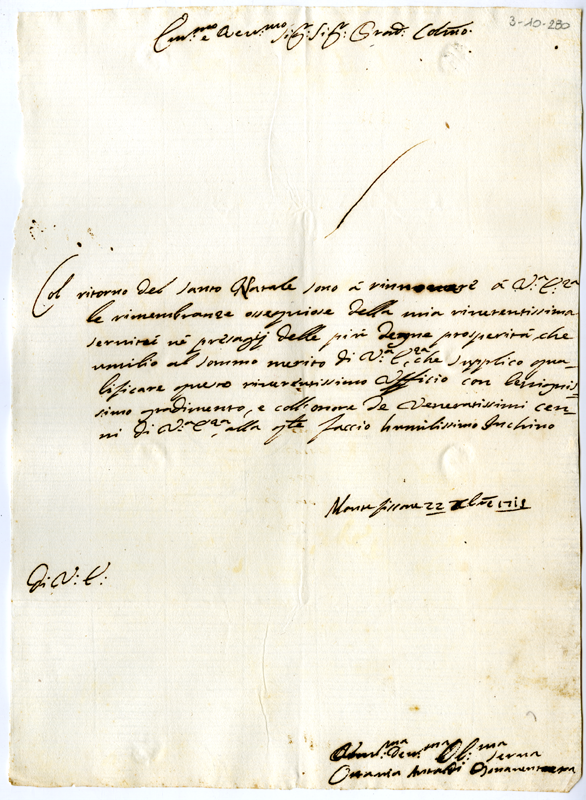 3-10-280
Em.mo e Rev.mo Sig.r Sig.r Prōn: Colmo.
Col ritorno del Santo Natale sono à rinnovare à V.a E.za
le rimembranze ossequiose della mia riverentissima
servitù né presagij delle più degne prosperità, che
umilio al sommo merito di V.a E.za, che supplico qua-
lificare questo riverentissimo Ufficio con benigni-
simo gradimento, e coll'onore de Veneratissimi cen-
ni di V.a E.za, alla qte faccio humilissimo Inchino
Monte fiascone 22 Xbre 1711
Di V: E:
Hum.ma Dev.ma Obl.ma Serva
Bonaventura